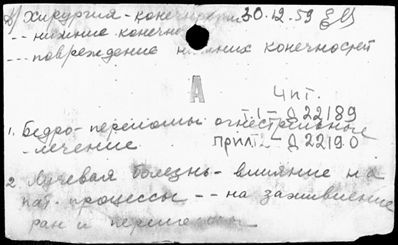 А) Хирургия - конечности 30.12.59
-- нижние конечно
-- повреждение нижних конечностей
А
Чит.
т.1 - Д 22189
1. Бедро - переломы огнестрельные
- лечение
прил. 2 - Д 22190
2 Лучевая болезнь - влияние на
пат. процессы -- на заживление
ран и переломы